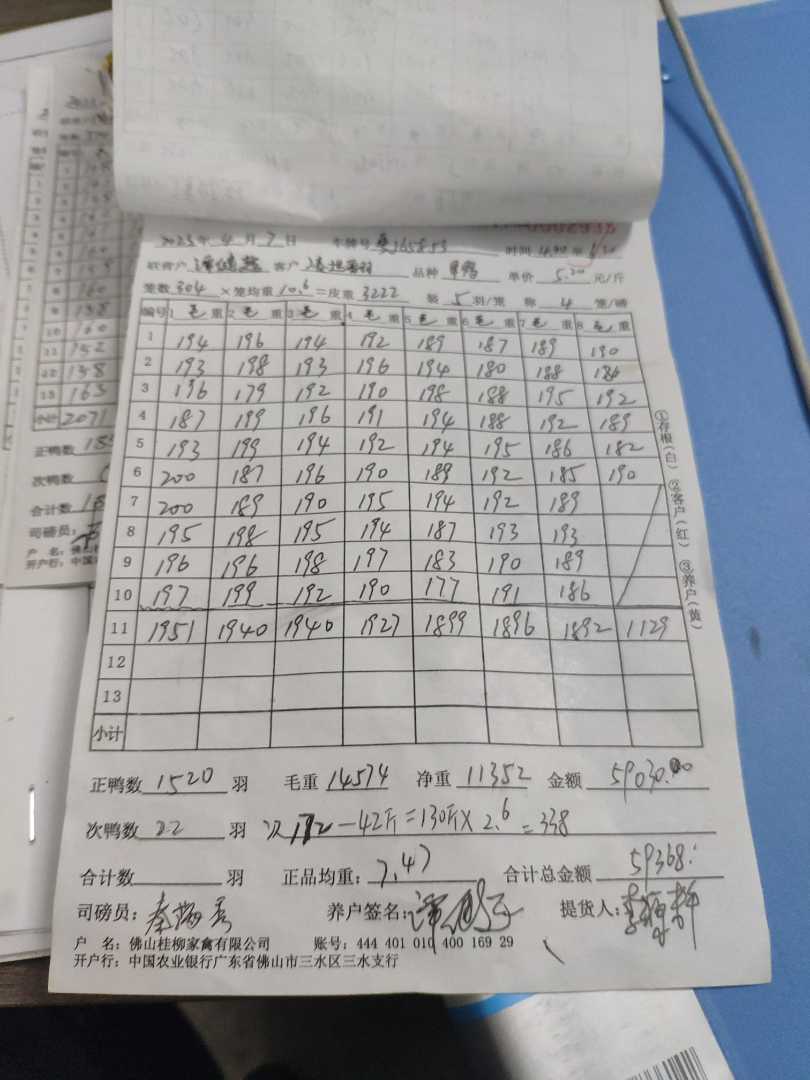 2023年4月7日 车牌号 时间
客户 品种 单价 5.20 元/斤
笼数 304 ×笼均重 10.6 =皮重 3222 装 5 羽/笼 称 4 笼/磅
编号 1 毛重 2 毛重 3 毛重 4 毛重 5 毛重 6 毛重 7 毛重 8 毛重
1 194 196 194 192 189 187 189 190
2 193 198 193 196 194 180 188 186
3 196 179 192 190 198 188 195 192
4 187 199 196 191 194 188 192 189
5 193 199 194 192 194 195 186 182
6 200 187 196 190 189 192 185 190
7 200 189 190 195 194 192 189
8 195 198 195 194 187 193 193
9 196 196 198 197 183 190 189
10 197 199 192 190 177 191 186
11 1951 1940 1940 1927 1899 1896 1892 1129
12
13
小计
①存根(白) ②客户(红) ③养户(黄)
正鸭数 1520 羽 毛重 14574 净重 11352 金额 59030.00
次鸭数 22 羽 次 172-42斤=130斤×2.6=338
合计数 羽 正品均重: 7.47 合计总金额 59368.
司磅员: 养户签名: 提货人:
户 名: 佛山桂柳家禽有限公司 账号: 444 401 010 400 169 29
开户行: 中国农业银行广东省佛山市三水区三水支行
小计 2071
正鸭数
次鸭数
合计数
司磅员:
户 名: 佛
开户行: 中国